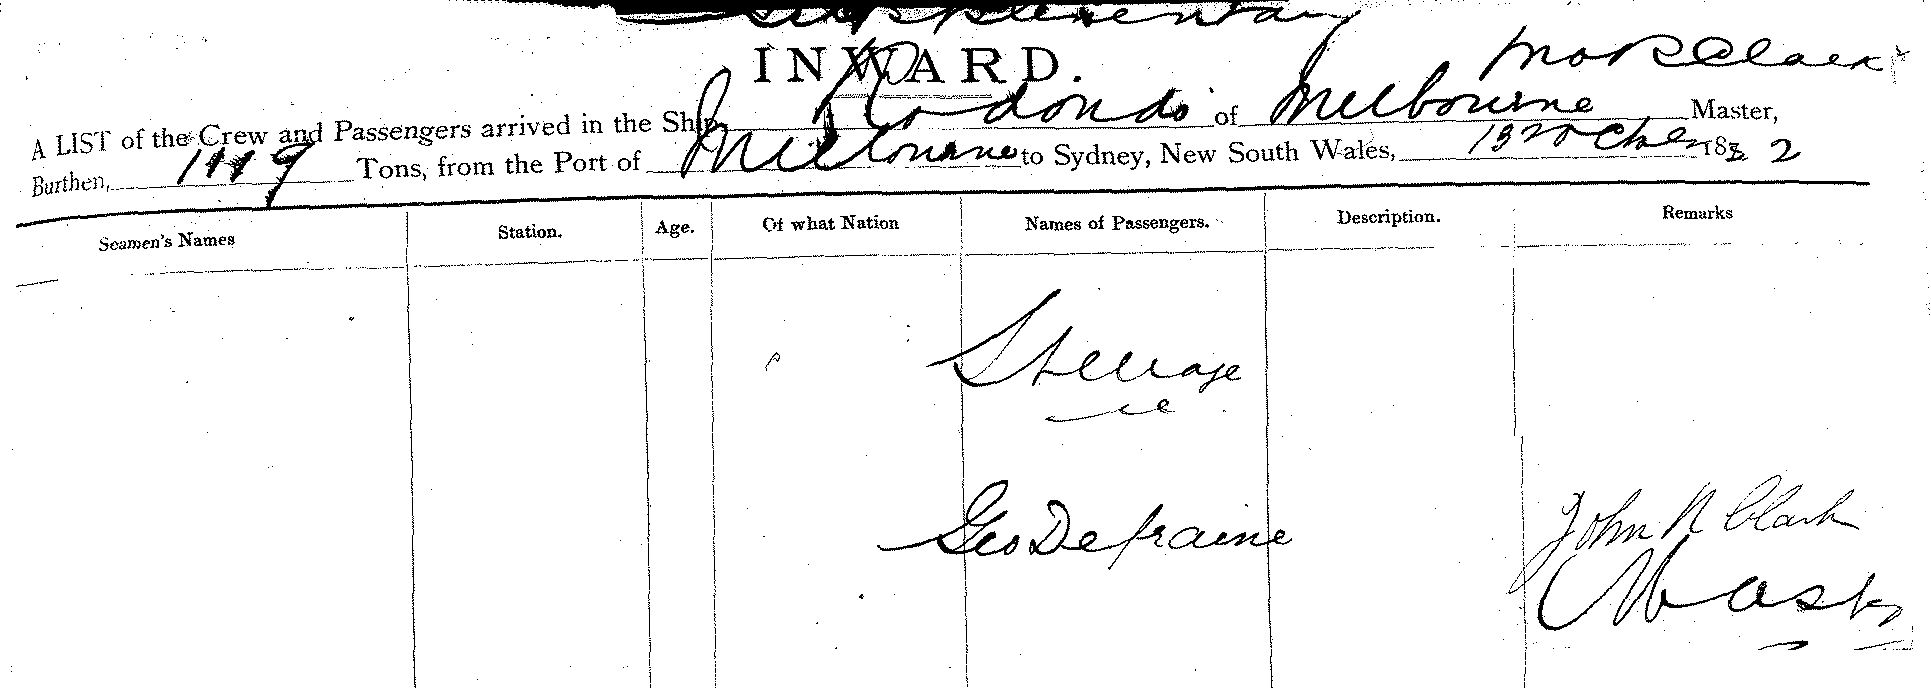 Supplementary
INWARD.
A LIST of the Crew and Passengers arrived in the Ship Rodondo of Melbourne Clark Master,
Burthen, 1119 Tons, from the Port of Melbourne to Sydney, New South Wales, 13 1882
Seamen's Names Station. Age. Of what Nation Names of Passengers. Description. Remarks
Steerage
Geo Defraine
John R Clark
Master